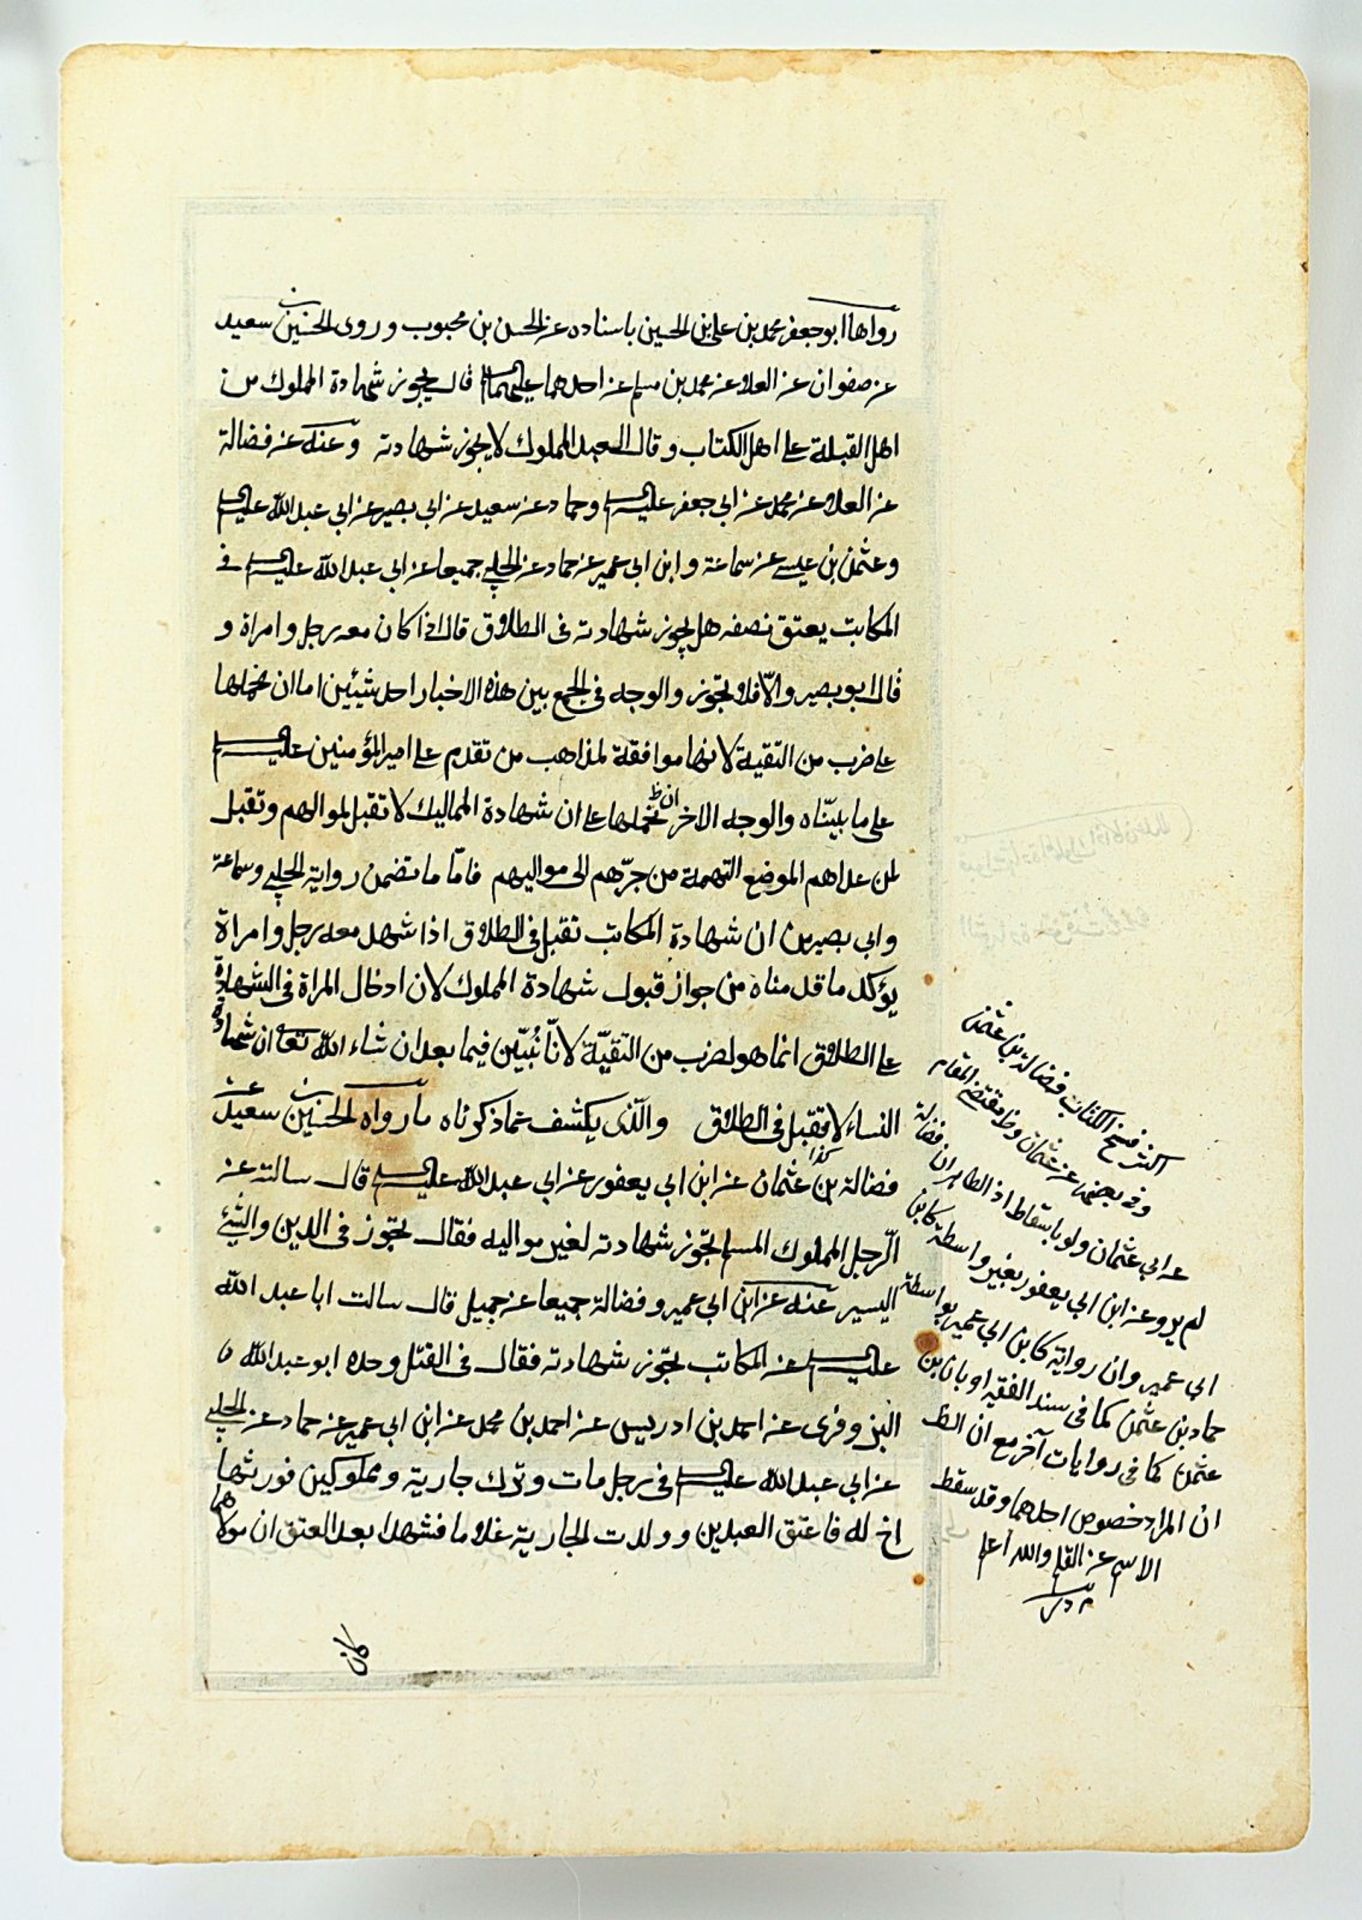 رواها ابو جعفر محمد بن علي بن الحسين باسناده عن الحسن بن محبوب وروى الحسين بن سعيد
عن صفوان عن العلا عن محمد بن مسلم عن احدهما عليهما السلام قال يجوز شهادة المملوك من
اهل القبلة على اهل الكتاب وقال العبد المملوك لا يجوز شهادته وعنه عن فضالة
عن العلا عن محمد عن ابي جعفر عليه السلام وحماد عن سعيد عن ابي بصير عن ابي عبد الله عليه السلام
وعثمن بن عيسى عن سماعة وابن ابي عمير عن حماد عن الحلبي جميعا عن ابي عبد الله عليه السلام في
المكاتب يعتق نصفه هل يجوز شهادته في الطلاق قال اذا كان معه رجل وامراة و
قال ابو بصير والّا فلا تجوز والوجه في الجمع بين هذه الاخبار احد شيئين اما ان نحملها
على ضرب من التقية لانها موافقة لمذاهب من تقدم على امير المؤمنين عليه السلام
على ما بيّناه والوجه الاخر ان نحملها على ان شهادة المماليك لا تقبل لمواليهم وتقبل
لمن عداهم الموضع التهمة من جرّهم الى مواليهم فامّا ما تضمن رواية الحلبي وسماعة
وابي بصير من ان شهادة المكاتب تقبل في الطلاق اذا شهد معه رجل وامراة
يؤكد ما قدمناه من جواز قبول شهادة المملوك لان ادخال المراة في الشهادة
على الطلاق انما هو لضرب من التقيّة لانّا نُبيّن فيما بعد ان شاء الله تعا ان شهادة
النساء لا تقبل في الطلاق والذى يكشف عما ذكرناه ما رواه الحسين بن سعيد عن
فضالة بن كذا عثمان عن ابن ابي يعفور عن ابي عبد الله عليه السلام قال سالته عن
الرّجل المملوك المسلم تجوز شهادته لغير مواليه فقال تجوز في الدين والشئ
اليسير عنه عن ابن ابي عمير وفضالة جميعا عن جميل قال سالت ابا عبد الله
عليه السلام عن المكاتب تجوز شهادته فقال في القتل وحده ابو عبد الله
البزوفرى عن احمد بن ادريس عن احمد بن محمد عن ابن ابي عمير عن حماد عن الحلبي
عن ابي عبد الله عليه السلام في رجل مات وترك جارية ومملوكين فورثهما
اخ له فاعتق العبدين وولدت الجارية غلاما فشهدا بعد العتق ان مولاهما
كان
اكثر نسخ الكتاب فضالة بن عثمن
وفي بعضها عن عثمان وظ مقتضى المقام
عن ابي عثمان ولو باسقاط اذ الظاهر ان فضالة
لم يرو عن ابن ابي يعفور بغير واسطة كابن
ابي عمير وان رواية كابن ابي عمير بواسطة
حماد بن عثمن كما في سند الفقيه او بابان بن
عثمن كما في روايات آخر مع ان الظ
ان المراد خصوص احدهما وقد سقط
الاسم عن القلم والله اعلم